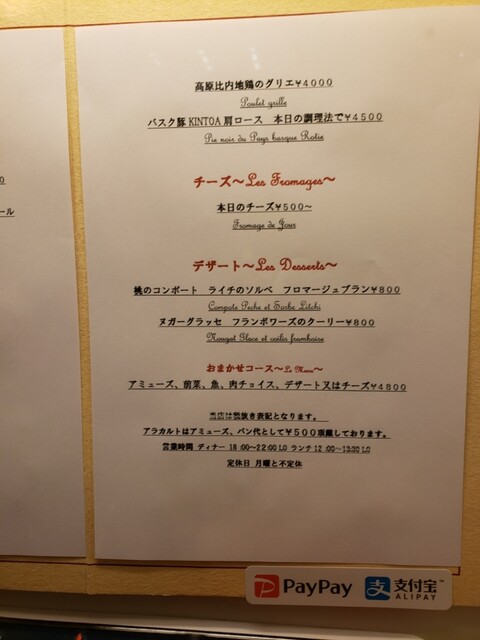 高原比内地鶏のグリエ¥4000
Poulet grille
バスク豚 KINTOA 肩ロース　本日の調理法で¥4500
Pie noir du Pays basque Rotie
チーズ～Les Fromages～
本日のチーズ¥500～
Fromage de Jour
デザート～Les Desserts～
桃のコンポート　ライチのソルベ　フロマージュブラン¥800
Compote Peche et Sorbe Litchi
ヌガーグラッセ　フランボワーズのクーリー¥800
Nougat Glace et coulis framboise
おまかせコース～Le Menu～
アミューズ、前菜、魚、肉チョイス、デザート又はチーズ¥4800
当店は税抜き表記となります。
アラカルトはアミューズ、パン代として¥500頂戴しております。
営業時間 ディナー 18:00～22:00 LO ランチ 12:00～13:30 LO
定休日 月曜と不定休
0
ール
PayPay
支付宝™
ALIPAY